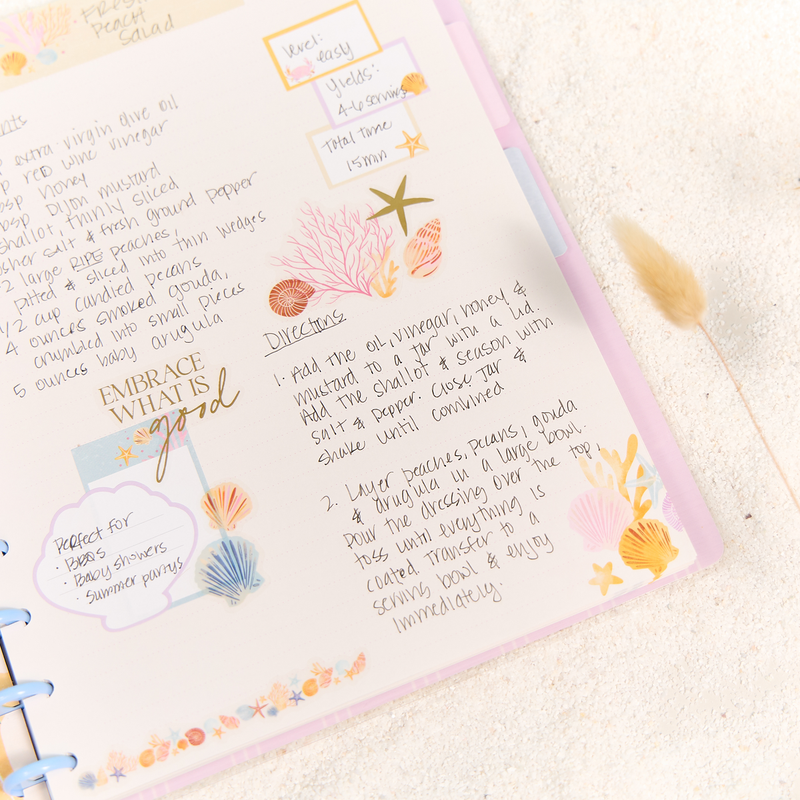 FRESH
Peach
Salad
level:
easy
Yields:
4-6 servings
Total time
15 min
extra-virgin olive oil
red wine vinegar
honey
Dijon mustard
shallot, thinly sliced
salt & fresh ground pepper
2 large RIPE peaches,
pitted & sliced into thin wedges
1/2 cup candied pecans
4 ounces smoked gouda,
crumbled into small pieces
5 ounces baby arugula
EMBRACE
WHAT IS
good
Perfect for
· BBQs
· Baby showers
· Summer partys
Directions
1. Add the oil, vinegar, honey &
mustard to a jar with a lid.
Add the shallot & season with
salt & pepper. Close jar &
shake until combined
2. Layer peaches, pecans, gouda
& arugula in a large bowl.
pour the dressing over the top,
toss until everything is
coated. Transfer to a
serving bowl & enjoy
immediately.